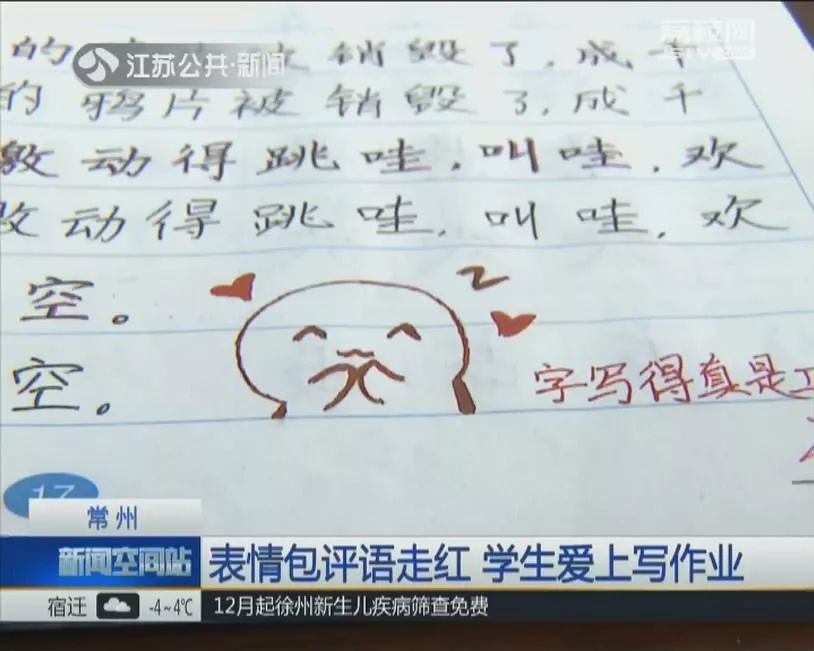 荔枝网
JSTV.COM
江苏公共·新闻
的 销毁了,成千
的鸦片被销毁了,成千
敫动得跳哇,叫哇,欢
激动得跳哇,叫哇,欢
空。
空。
字写得真是工
17
常州
新闻空间站
表情包评语走红 学生爱上写作业
宿迁 -4~4℃ 12月起徐州新生儿疾病筛查免费